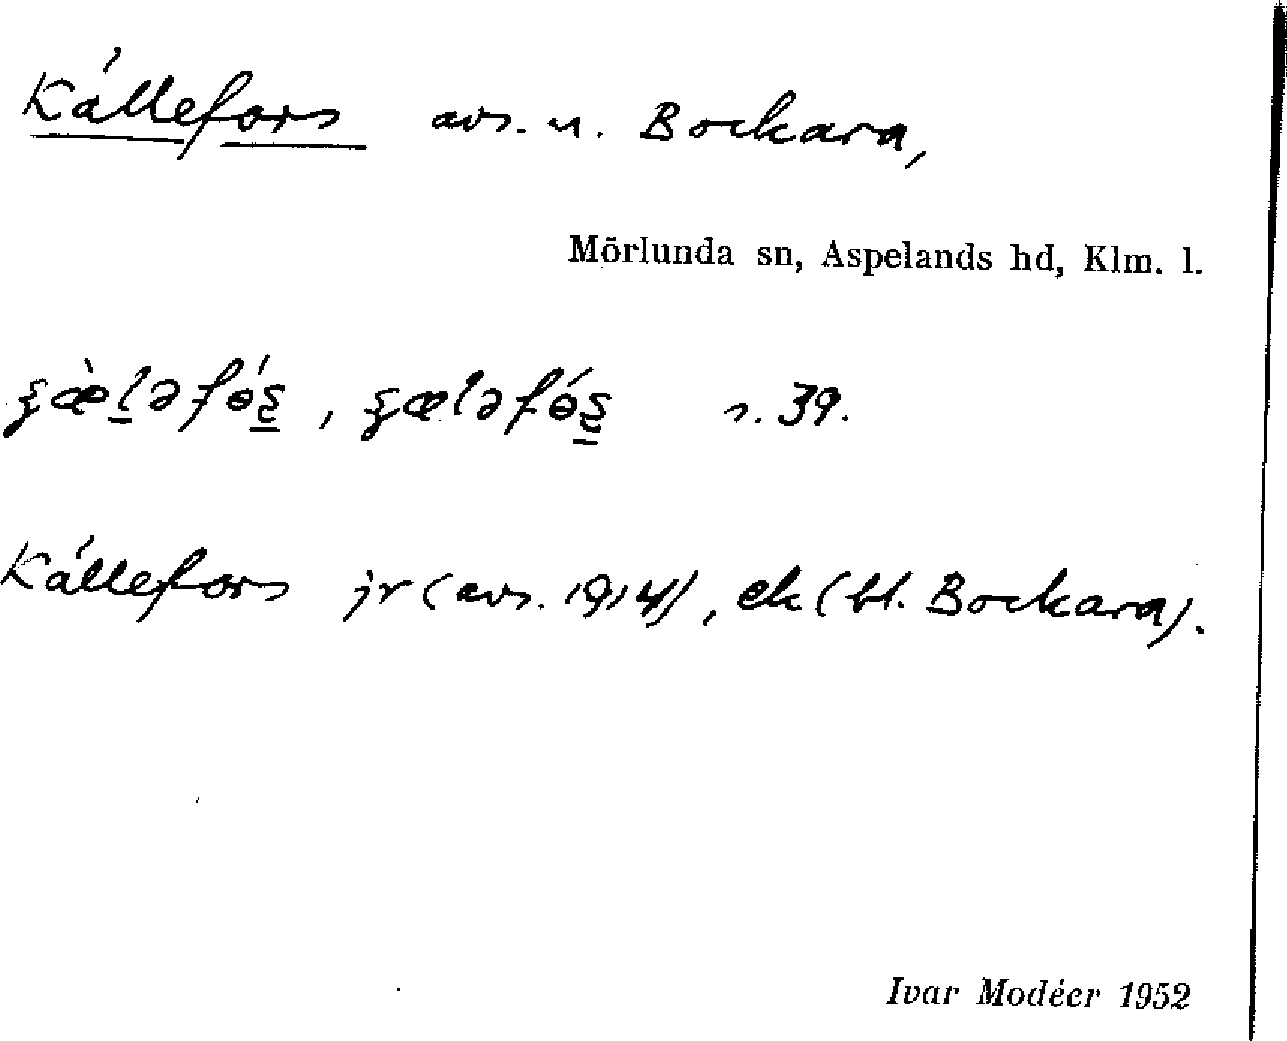 Källefors avs. u. Bockara,
Mörlunda sn, Aspelands hd, Klm. l.
s. 39.
Källefors jr (avs. 1914), ek (bl. Bockara).
Ivar Modéer 1952